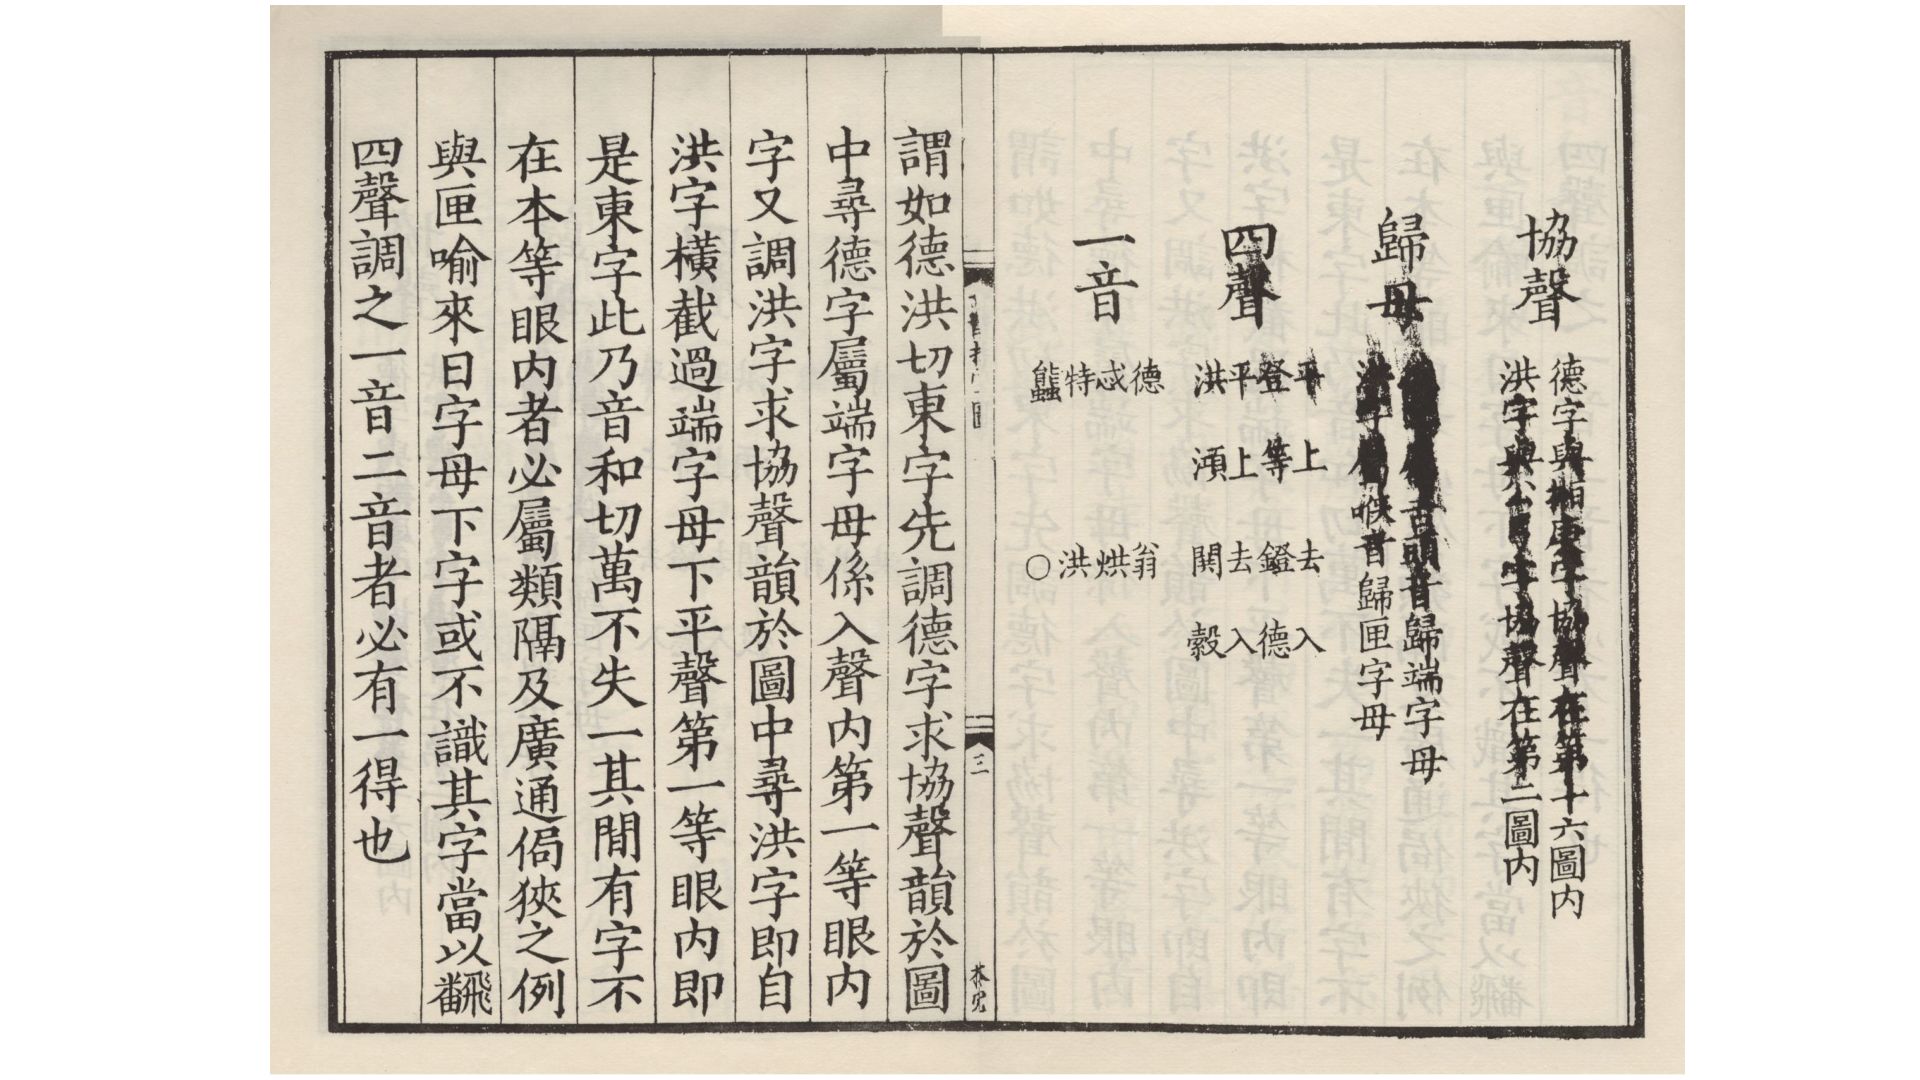 協聲
德字與 字協聲在第十六圖内
洪字與 字協聲在第二圖内
歸母
舌頭音歸端字母
洪字屬喉音歸匣字母
四聲
平上去入
登等鐙德
平上去入
洪澒閧縠
一音
德翁
忒烘
特洪
○
三
謂如德洪切東字先調德字求協聲韻於圖
中尋德字屬端字母係入聲内第一等眼内
字又調洪字求協聲韻於圖中尋洪字即自
洪字橫截過端字母下平聲第一等眼内即
是東字此乃音和切萬不失一其閒有字不
在本等眼内者必屬類隔及廣通偈狹之例
與匣喻來日字母下字或不識其字當以飜
四聲調之一音二音者必有一得也